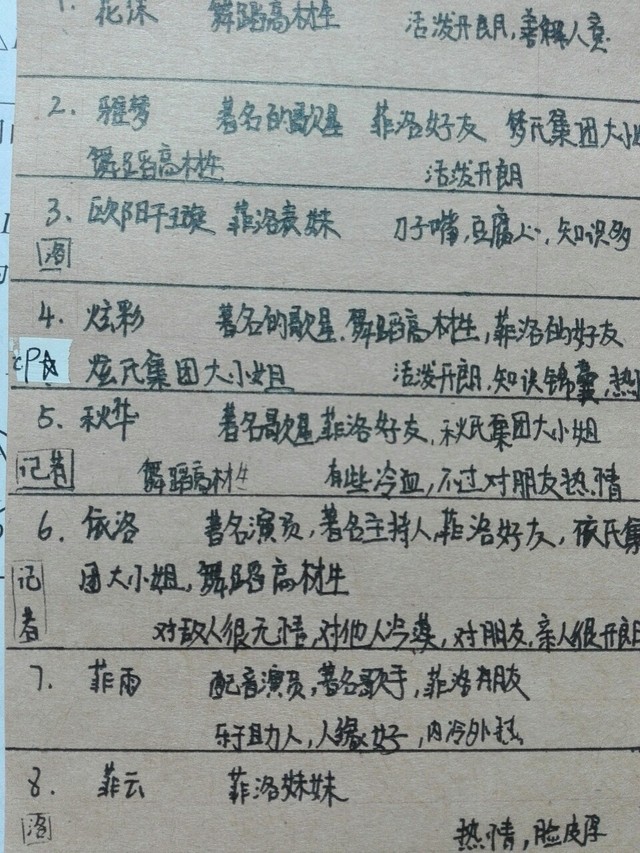 1. 花沫 舞蹈高材生 活泼开朗,善解人意
2. 雅梦 著名的歌星 菲洛好友 梦氏集团大小
舞蹈高材生 活泼开朗
3. 欧阳千璇 菲洛表妹 刀子嘴,豆腐心,知识多
洛
4. 炫彩 著名的歌星.舞蹈高材生,菲洛的好友
CP☆ 炫氏集团大小姐 活泼开朗.知识锦囊,热
5. 秋华 著名歌星菲洛好友,秋氏集团大小姐
记者 舞蹈高材生 有些冷血,不过对朋友热情
6. 依洛 著名演员,著名主持人,菲洛好友,依氏集
记者 团大小姐,舞蹈高材生
对敌人很无情,对他人冷漠,对朋友,亲人很开朗
7. 菲雨 配音演员,著名歌手,菲洛朋友
乐于助人,人缘好,内冷外热
8. 菲云 菲洛妹妹
洛 热情,脸皮厚